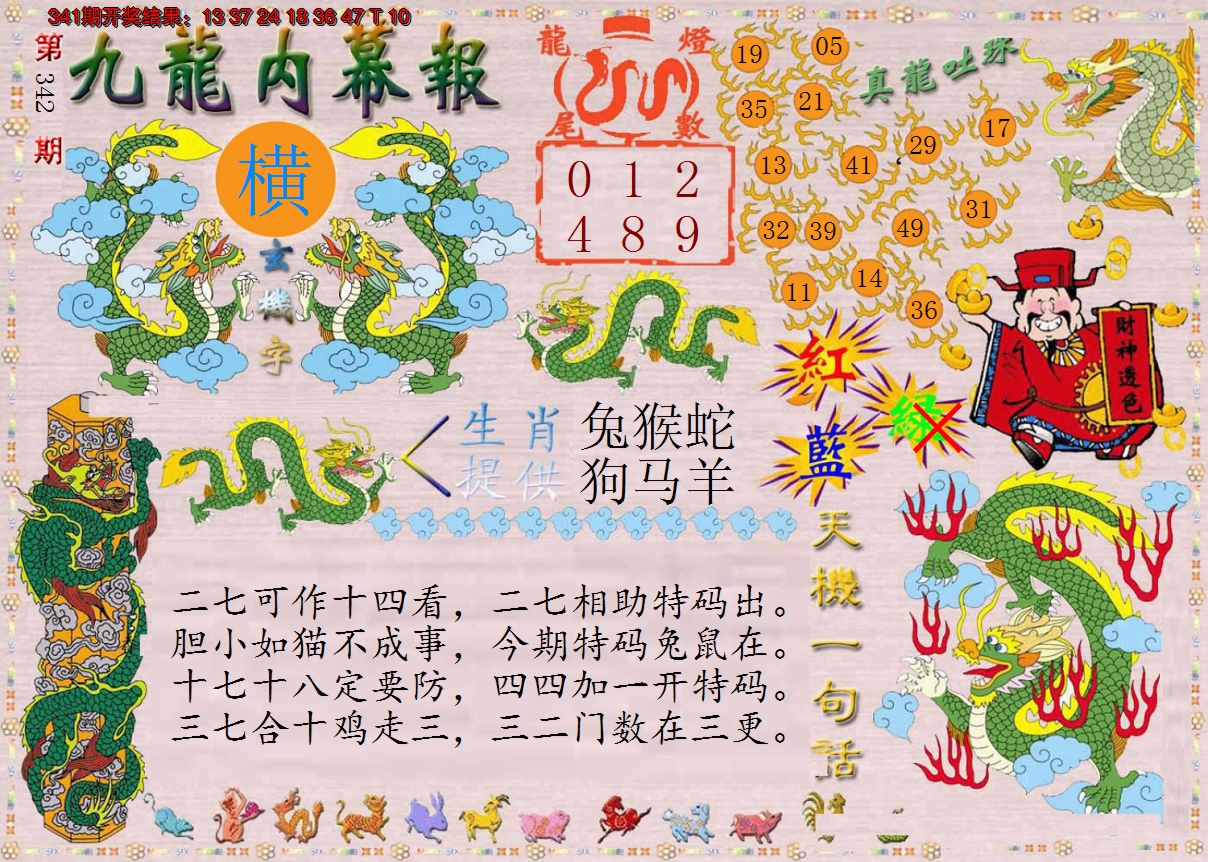 341期开奖结果：13 37 24 18 36 47 T 10
第342期
九龍内幕報
横
玄機字
龍燈
尾數
0 1 2
4 8 9
真龍吐珠
19 05
35 21
29 17
13 41
31
32 39 49
14
11 36
財神透色
紅
綠
藍
生肖 兔猴蛇
提供 狗马羊
天機一句话
二七可作十四看，二七相助特码出。
胆小如猫不成事，今期特码兔鼠在。
十七十八定要防，四四加一开特码。
三七合十鸡走三，三二门数在三更。